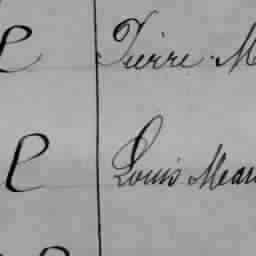 P Pierre M
P Louis Mar